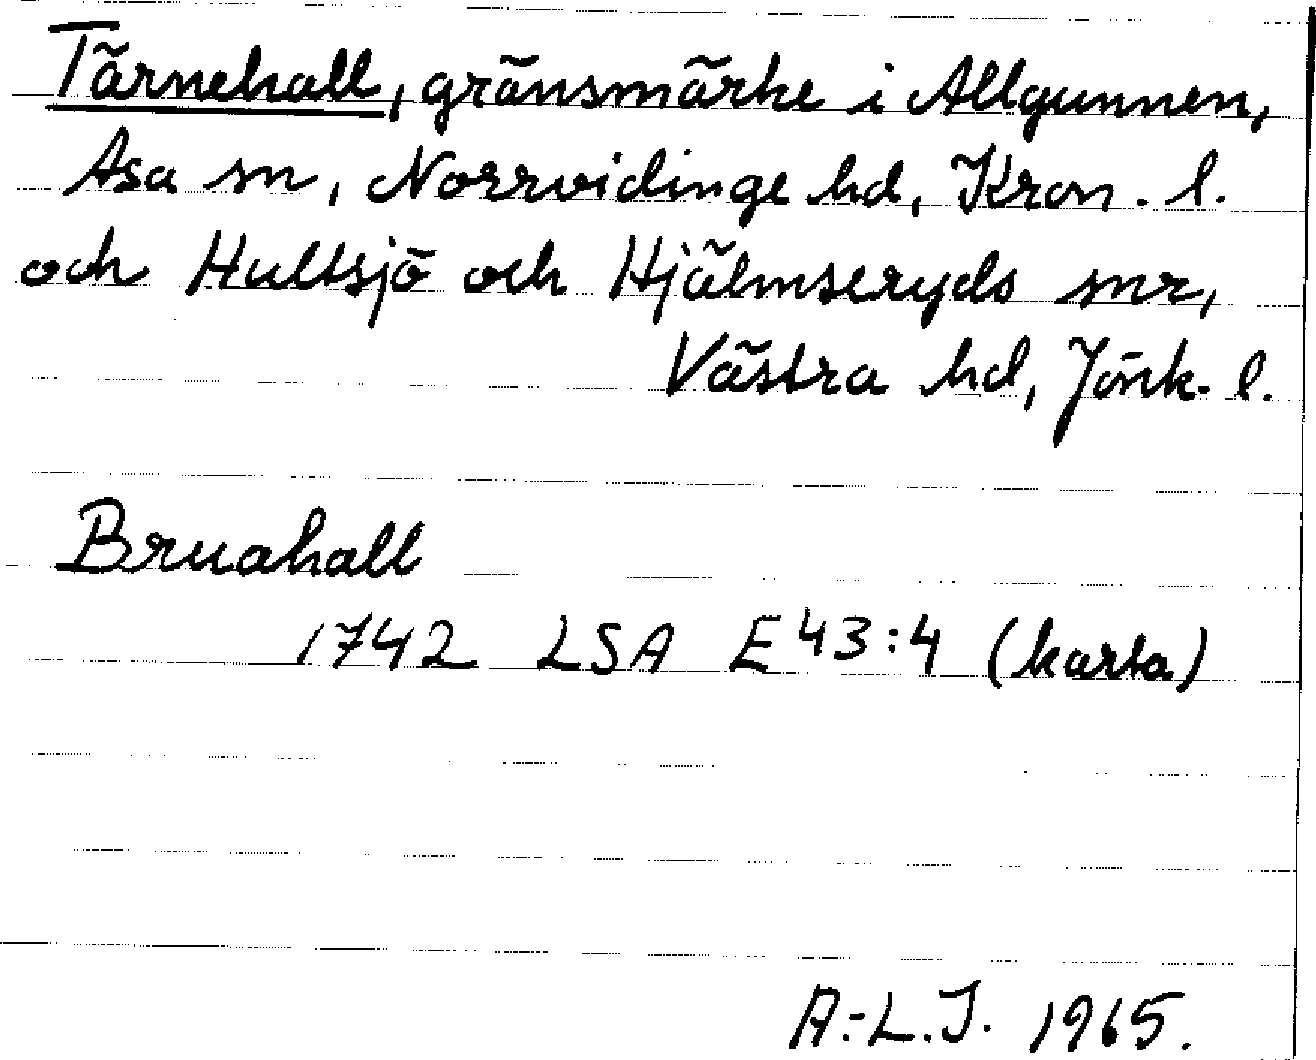 Tärnehall, gränsmärke i Allgunnen,
Asa sn, Norrvidinge hd, Kron. l.
och Hultsjö och Hjälmseryds snr,
Västra hd, Jönk. l.
Bruahall
1742 LSA E43:4 (karta)
A.-L.J. 1965.